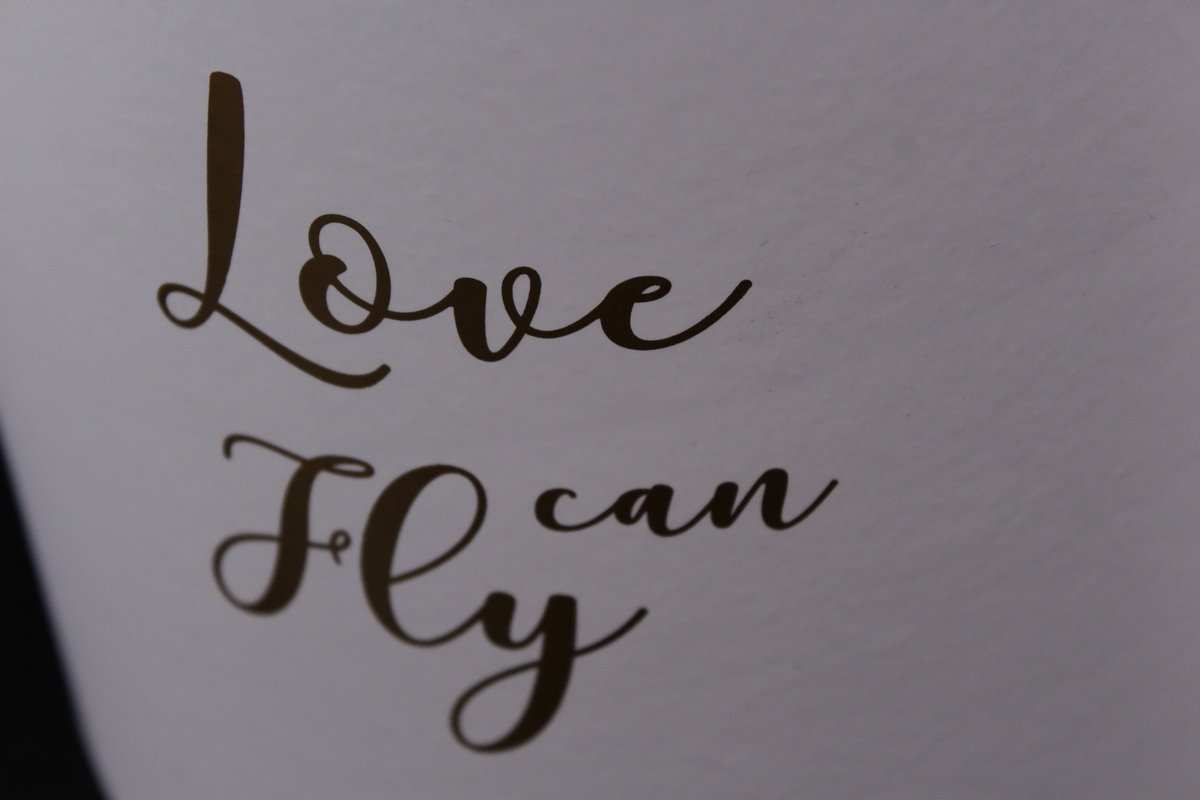 Love
can
Fly